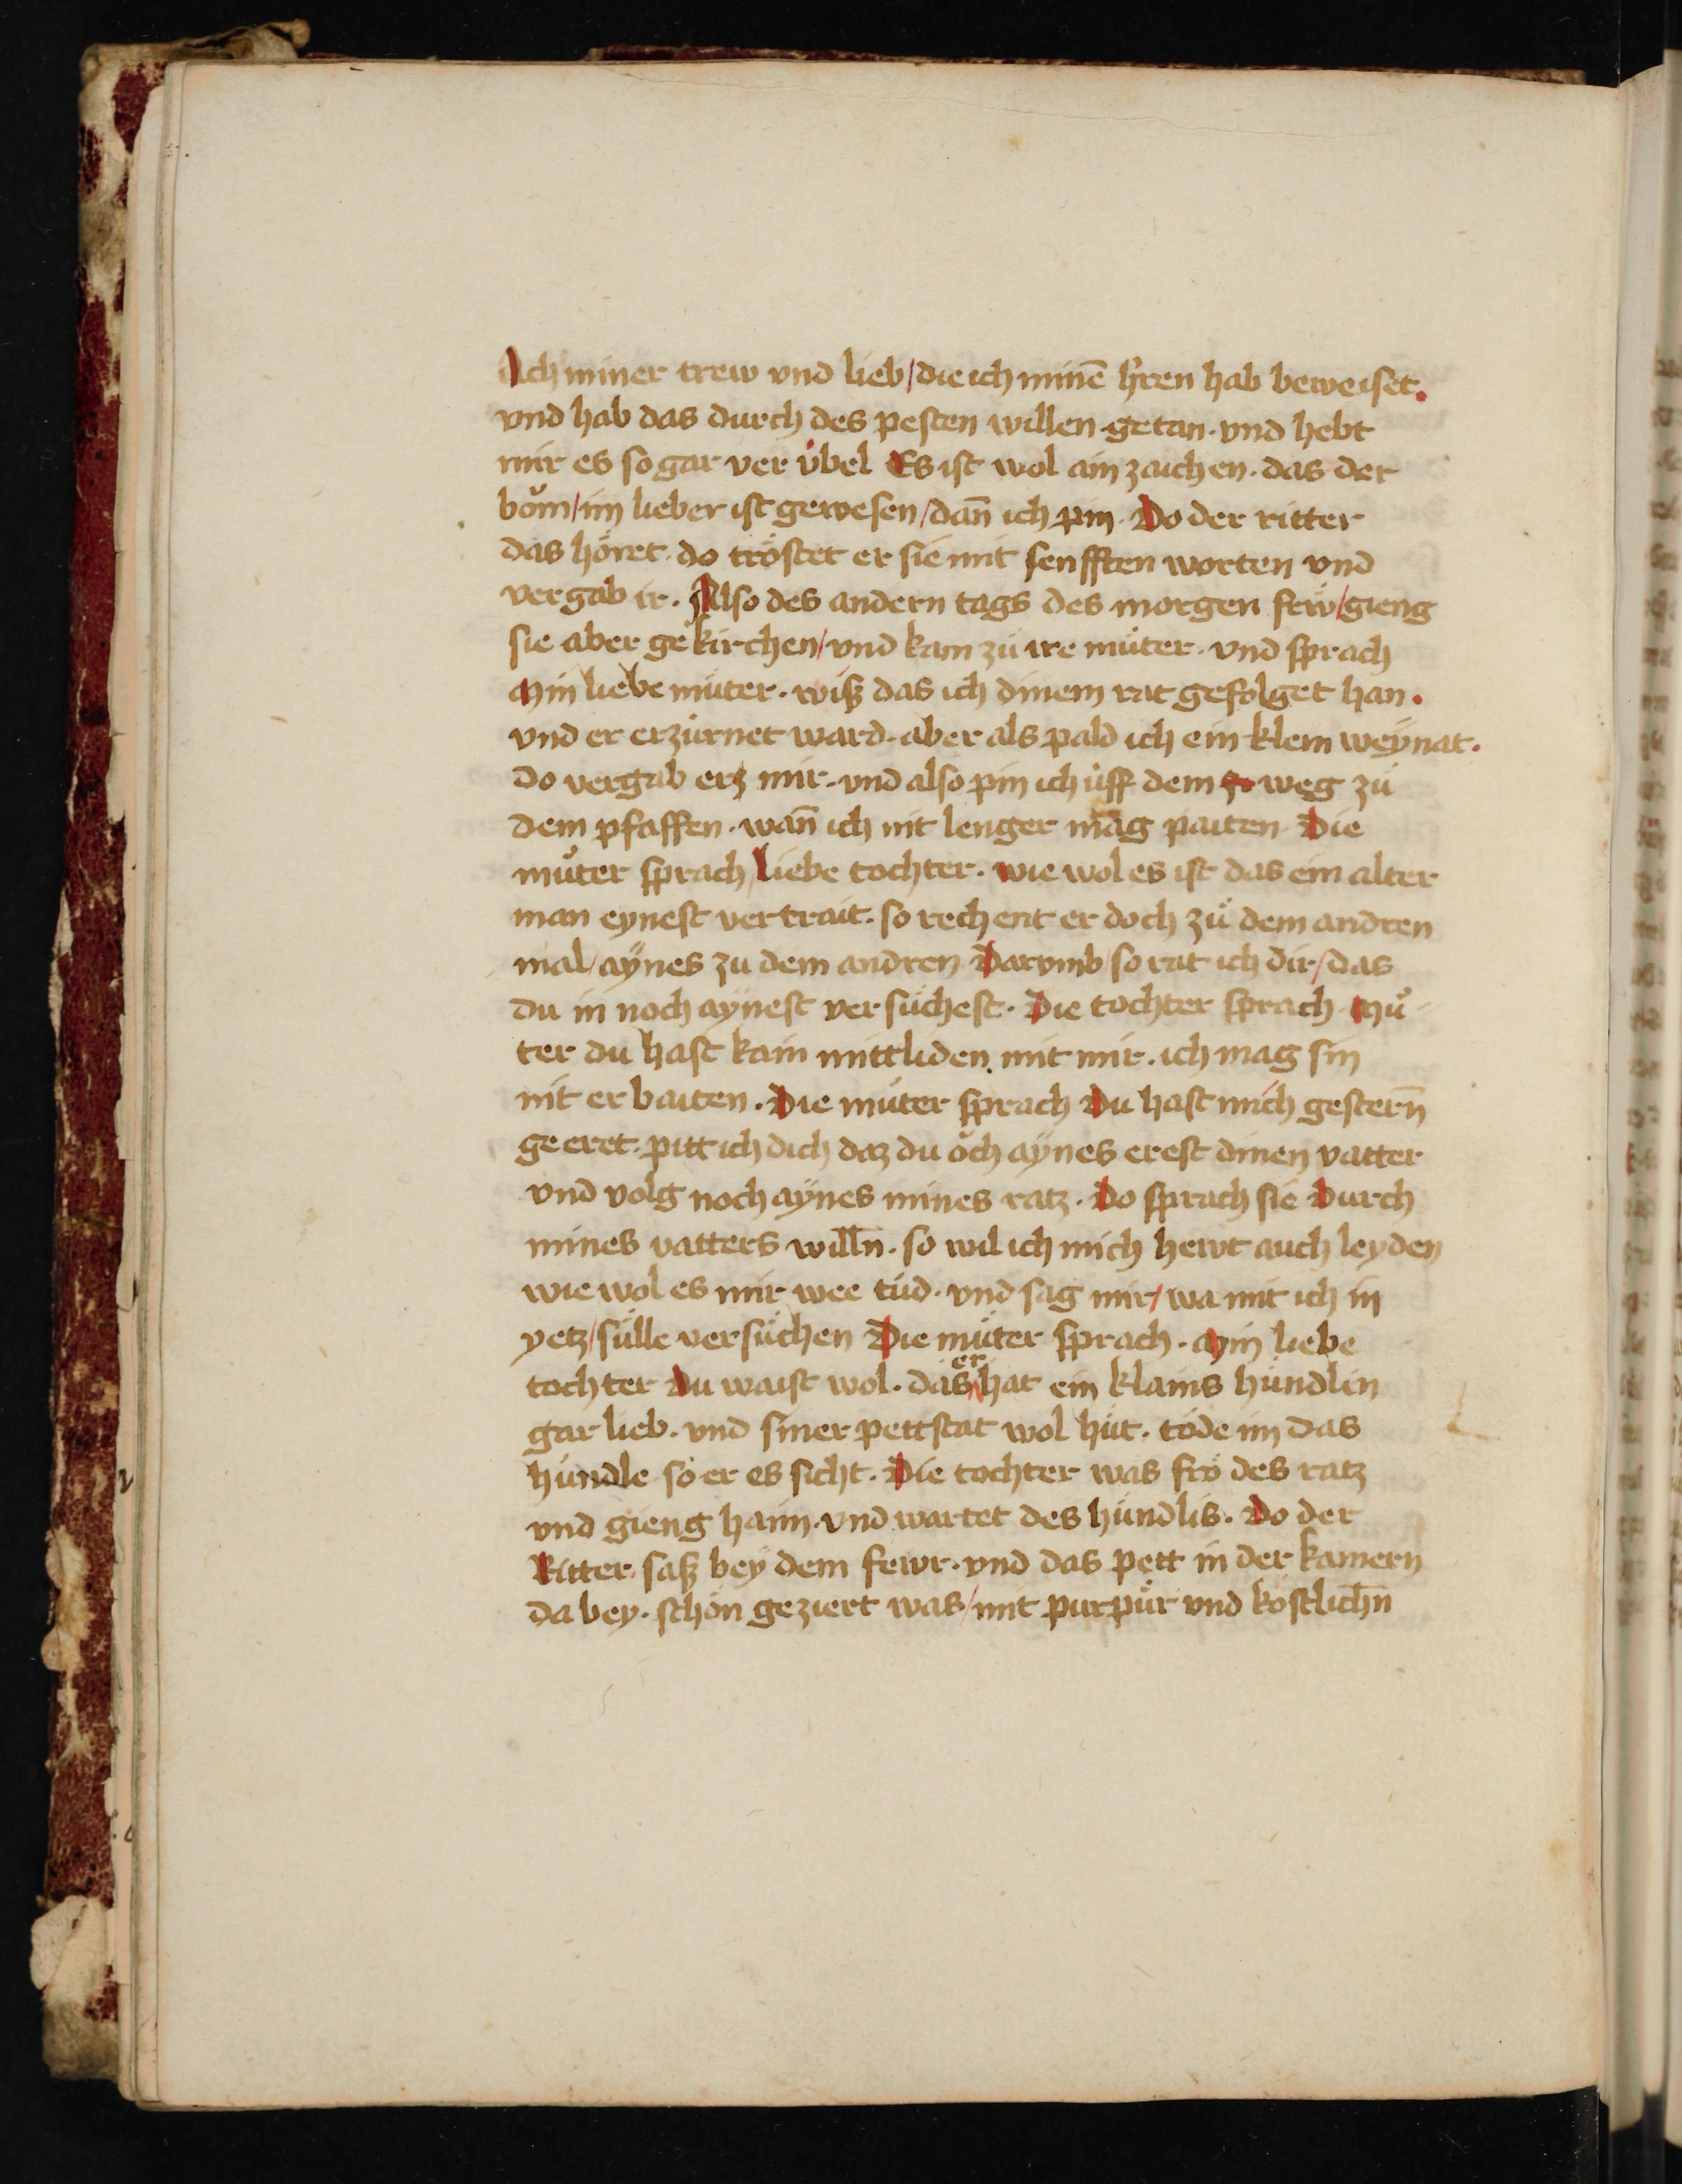 Ach miner trew vnd lieb / die ich minē hr̄en hab beweiset.
vnd hab das durch des pesten willen getan · vnd hebt
mir es so gar ver übel Es ist wol ain zaichen · das der
bom̆ / im lieber ist gewesen / dan̄ ich pin · Do der ritter
das höret · do tröstet er sie mit senfften worten vnd
vergab ir · Also des andern tags des morgen frw̆ / gieng
sie aber ge kirchen / vnd kam zü ire müter · vnd sprach
Min liebe müter · wiß das ich dinem rat gefolget han .
vnd er erzürnet ward · aber als pald ich ein klein weÿnat ·
do vergab erz mir · vnd also pin ich üff dem weg zü
dem pfaffen · wan̄ ich nit lenger mag paiten Die
mŭter sprach / liebe tochter · wie wol es ist das ein alter
man eynest vertrait · so rechent er doch zŭ dem andren
mal / aÿnes zu dem andren Darvmb / so rat ich dir / das
du in noch aÿnest versüchest · Die tochter sprach Mŭ -
ter du hast kain mittliden mit mir · ich mag sin
nit erbaiten · Die müter sprach Du hast mich gestern̄
geeret · pitt ich dich daz du ŏch aÿnes erest dinen vatter
vnd volg noch aÿnes mines ratz · Do sprach sie Durch
mines vatters willn̄ · so wil ich mich hewt auch leyden
wie wol es mir wee tüd · vnd sag mir / wa mit ich in
yetz / sülle versüchen Die müter sprach · Min liebe
tochter Du waist wol · das er hat ein klains hündlin
gar lieb · vnd siner pettstat wol hüt · töde im das
hündle so er es sicht · Die tochter was fro des ratz
vnd gieng haim · vnd wartet des hündlis · Do der
Ritter saß bey dem fewr · vnd das pett in der kamern
da bey · schön geziert was / mit purpür vnd kostlichn̄